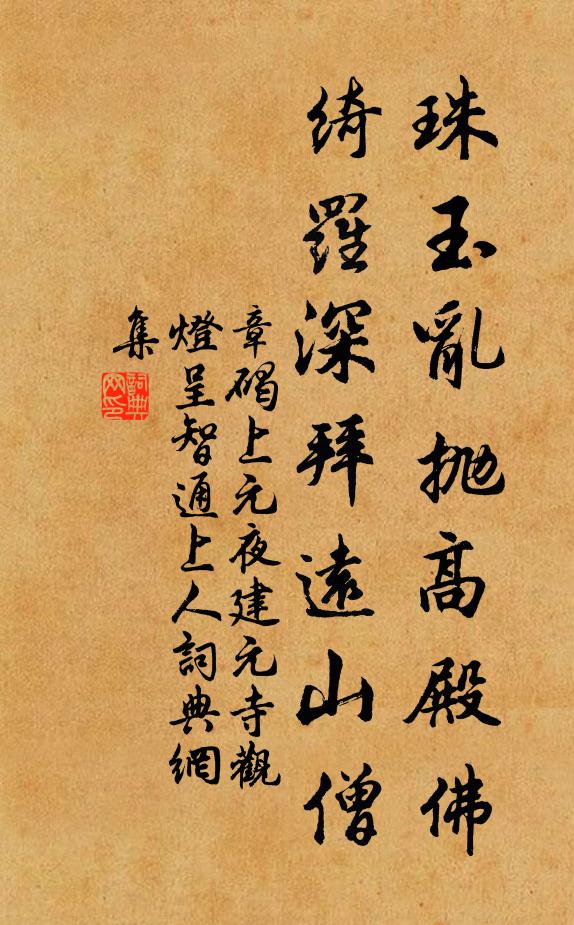 珠玉亂拋高殿佛
綺羅深拜遠山僧
章碣上元夜建元寺觀
燈呈智通上人詞典網
集
詞典
网印